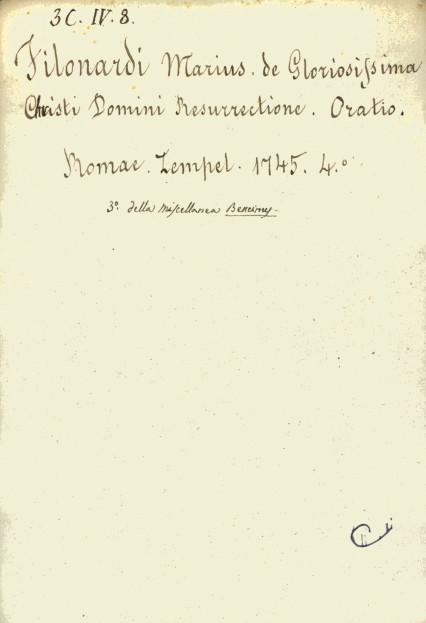 3C. IV. 8.
Filonardi Marius. de Gloriosissima
Christi Domini Resurrectione. Oratio.
Romae. Zempel. 1745. 4.º
3º della Miscellanea